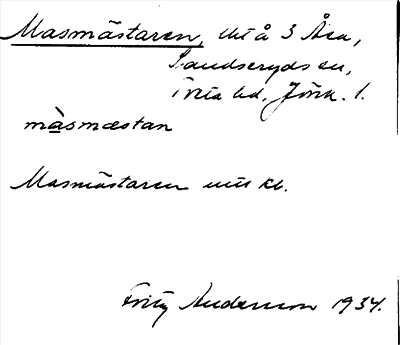 Masmästaren, utj å 3 Åsa,
Sandseryds sn,
Tveta hd, Jönk. l.
màsmæstan
Masmästaren
Fritz Andersson 1934.